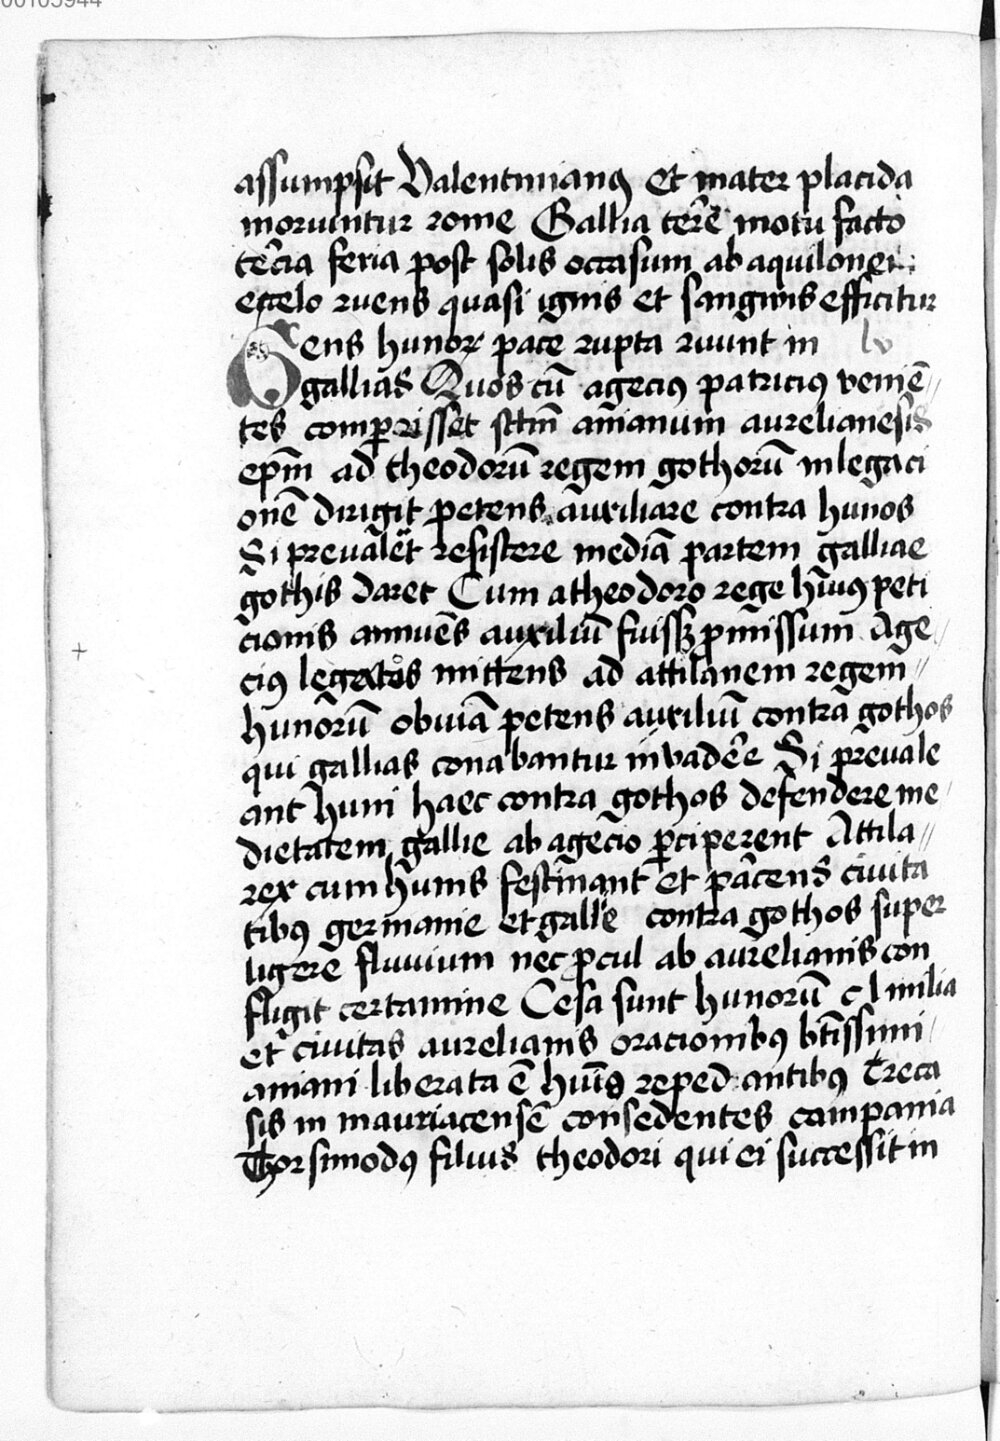 00105944
assumpsit Valentinianꝰ et mater placida
moriuntur rome Gallia tere motu facto
tercia feria post solis occasum ab aquilone
e celo ruens quasi ignis et sangwis efficitur
Gens hunoꝝ pace rupta ruunt in lv
gallias Quos cū agecius patricius veniē//
tes comperisset sctm̄ anianum aurelianesis
epm̄ ad theodorū regem gothorū in legaci
onē dirigit petens auxiliare contra hunos
Si prevalet resistere mediā partem galliae
gothis daret Cum a theodoro rege hui᷒ꝰ peti
cionis annuēs auxiliū fuissꝫ ꝓmissum Age/
ciꝰ legatos mittens ad attilanem regem//
hunorū obviā petens auxiliū contra gothos
qui gallias conabantur invadere Si prevale
ant huni haec contra gothos defendere me/
dietatem gallie ab agecio ꝑciperent Attila//
rex cum hunis festinant et parcens civita
tibꝰ germanie et gallie contra gothos super
ligere fluvium nec ꝓcul ab aurelianis con
fligit certamine Cesa sunt hunorū cl milia
et civitas aurelianis oracionibꝰ btissimi/
aniani liberata ē hunis repedantibꝰ treca
sis in mauriacensē consedentes campania
Thorsimodꝰ filius theodori qui ei successit in